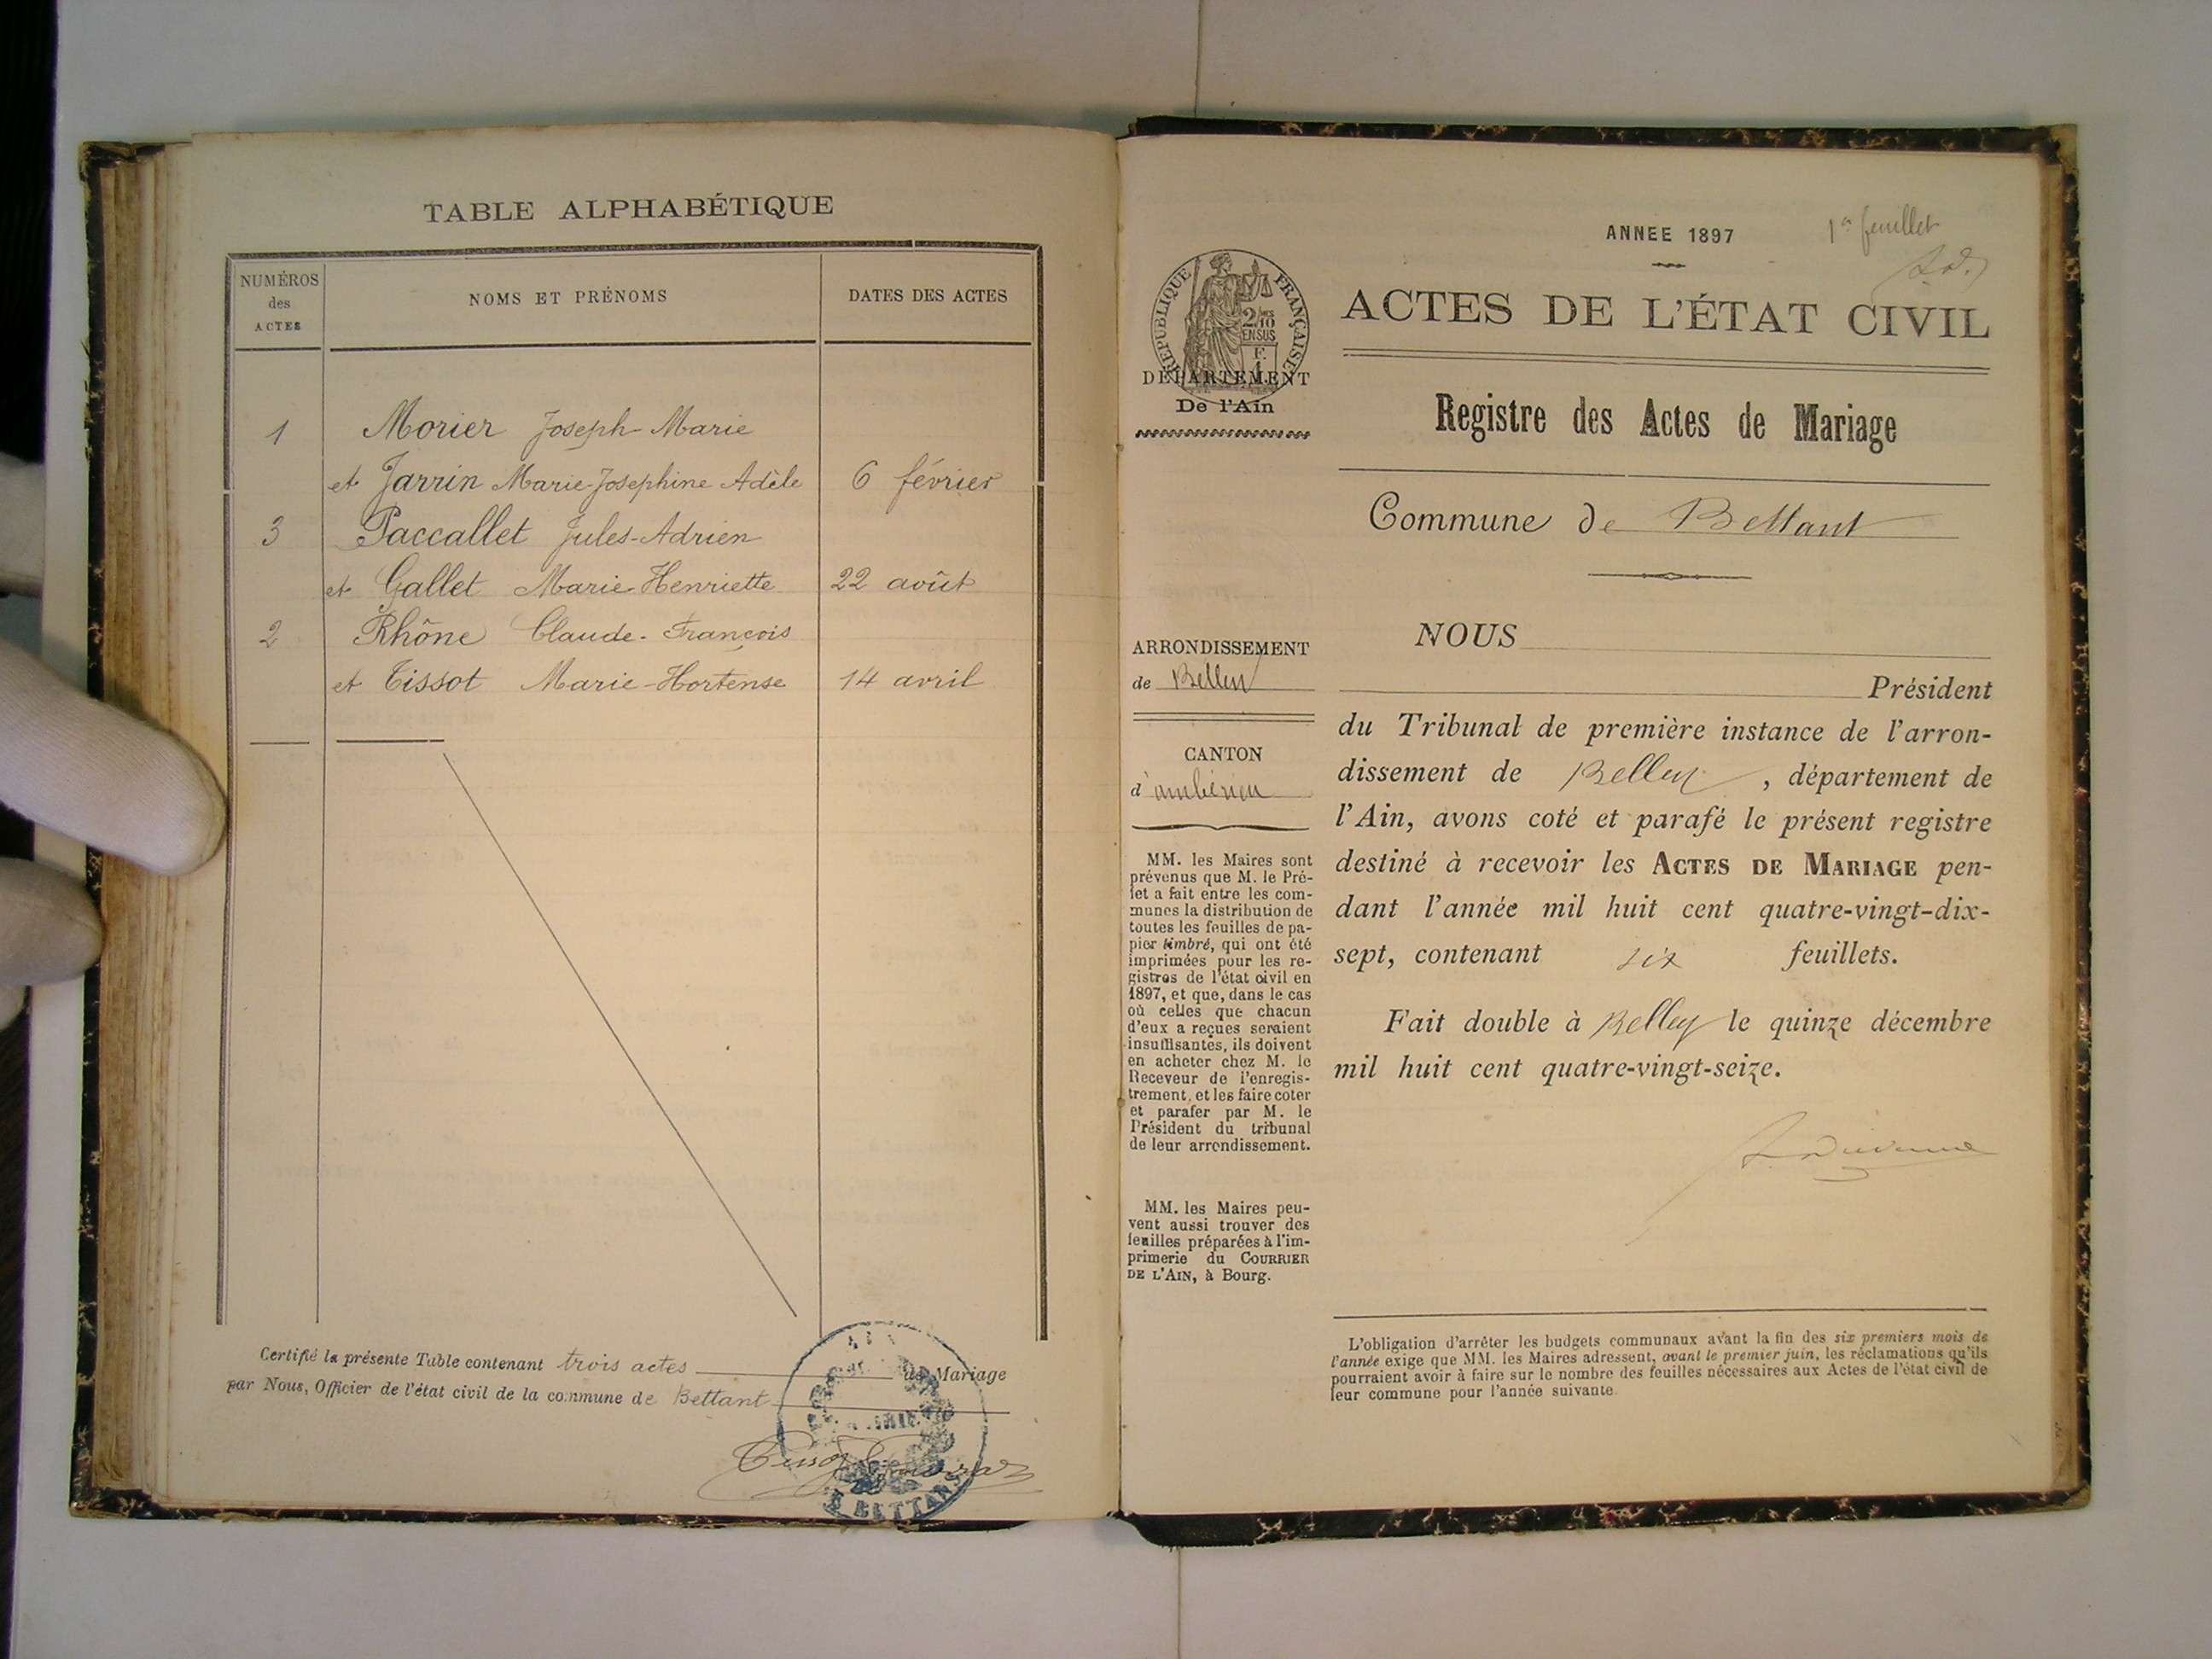 TABLE ALPHABÉTIQUE
NUMÉROS
des
ACTES
NOMS ET PRÉNOMS
DATES DES ACTES
1 Morier Joseph-Marie
et Jarrin Marie-Josephine Adèle 6 février
3 Paccallet Jules-Adrien
et Gallet Marie-Henriette 22 août
2 Rhône Claude-François
et Tissot Marie-Hortense 14 avril
Certifié la présente Table contenant trois actes de Mariage
par Nous, Officier de l'état civil de la commune de Bettant
ANNEE 1897
1er feuillet
RÉPUBLIQUE FRANÇAISE
2/10
EN SUS
DÉPARTEMENT
De l'Ain
ACTES DE L'ÉTAT CIVIL
Registre des Actes de Mariage
Commune de Bettant
ARRONDISSEMENT
de Belley
CANTON
d'ambérieu
MM. les Maires sont
prévenus que M. le Pré-
fet a fait entre les com-
munes la distribution de
toutes les feuilles de pa-
pier timbré, qui ont été
imprimées pour les re-
gistres de l'état civil en
1897, et que, dans le cas
où celles que chacun
d'eux a reçues seraient
insuffisantes, ils doivent
en acheter chez M. le
Receveur de l'enregis-
trement, et les faire coter
et parafer par M. le
Président du tribunal
de leur arrondissement.
MM. les Maires peu-
vent aussi trouver des
feuilles préparées à l'im-
primerie du COURRIER
DE L'AIN, à Bourg.
NOUS
Président
du Tribunal de première instance de l'arron-
dissement de Belley, département de
l'Ain, avons coté et parafé le présent registre
destiné à recevoir les ACTES DE MARIAGE pen-
dant l'année mil huit cent quatre-vingt-dix-
sept, contenant six feuillets.
Fait double à Belley le quinze décembre
mil huit cent quatre-vingt-seize.
L'obligation d'arrêter les budgets communaux avant la fin des six premiers mois de
l'année exige que MM. les Maires adressent, avant le premier juin, les réclamations qu'ils
pourraient avoir à faire sur le nombre des feuilles nécessaires aux Actes de l'état civil de
leur commune pour l'année suivante